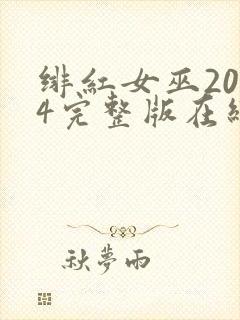 绯红女巫20
4完整版在线
秋梦雨